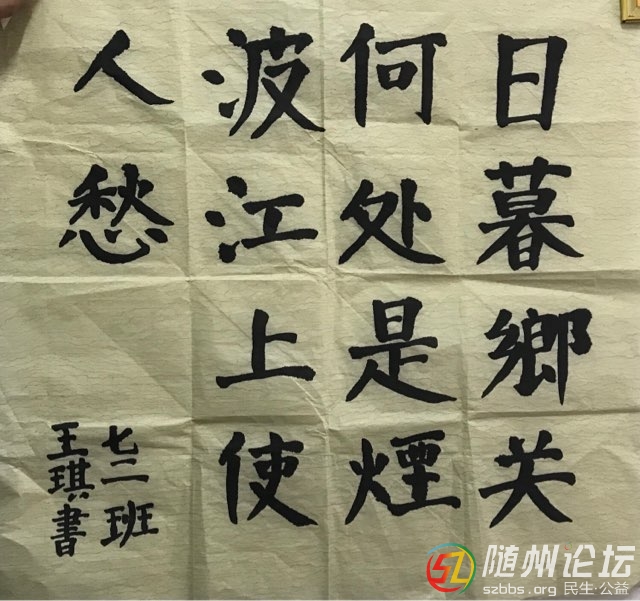 日暮鄉关
何处是煙
波江上使
人愁
七二班
王琪書
随州论坛
szbbs.org 民生·公益